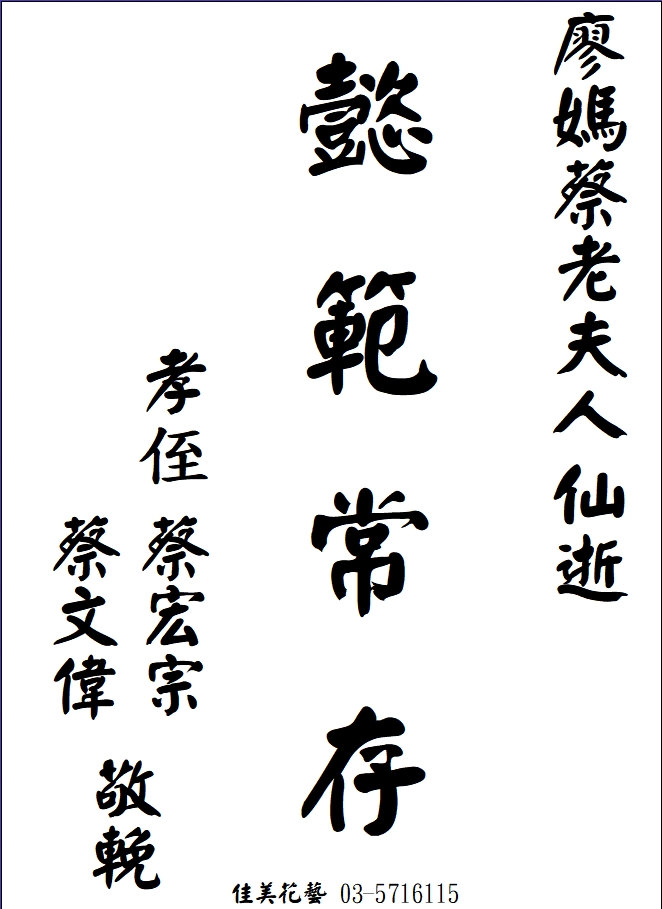 廖媽蔡老夫人仙逝
懿範常存
孝侄
蔡宏宗
蔡文偉
敬輓
佳美花藝 03-5716115